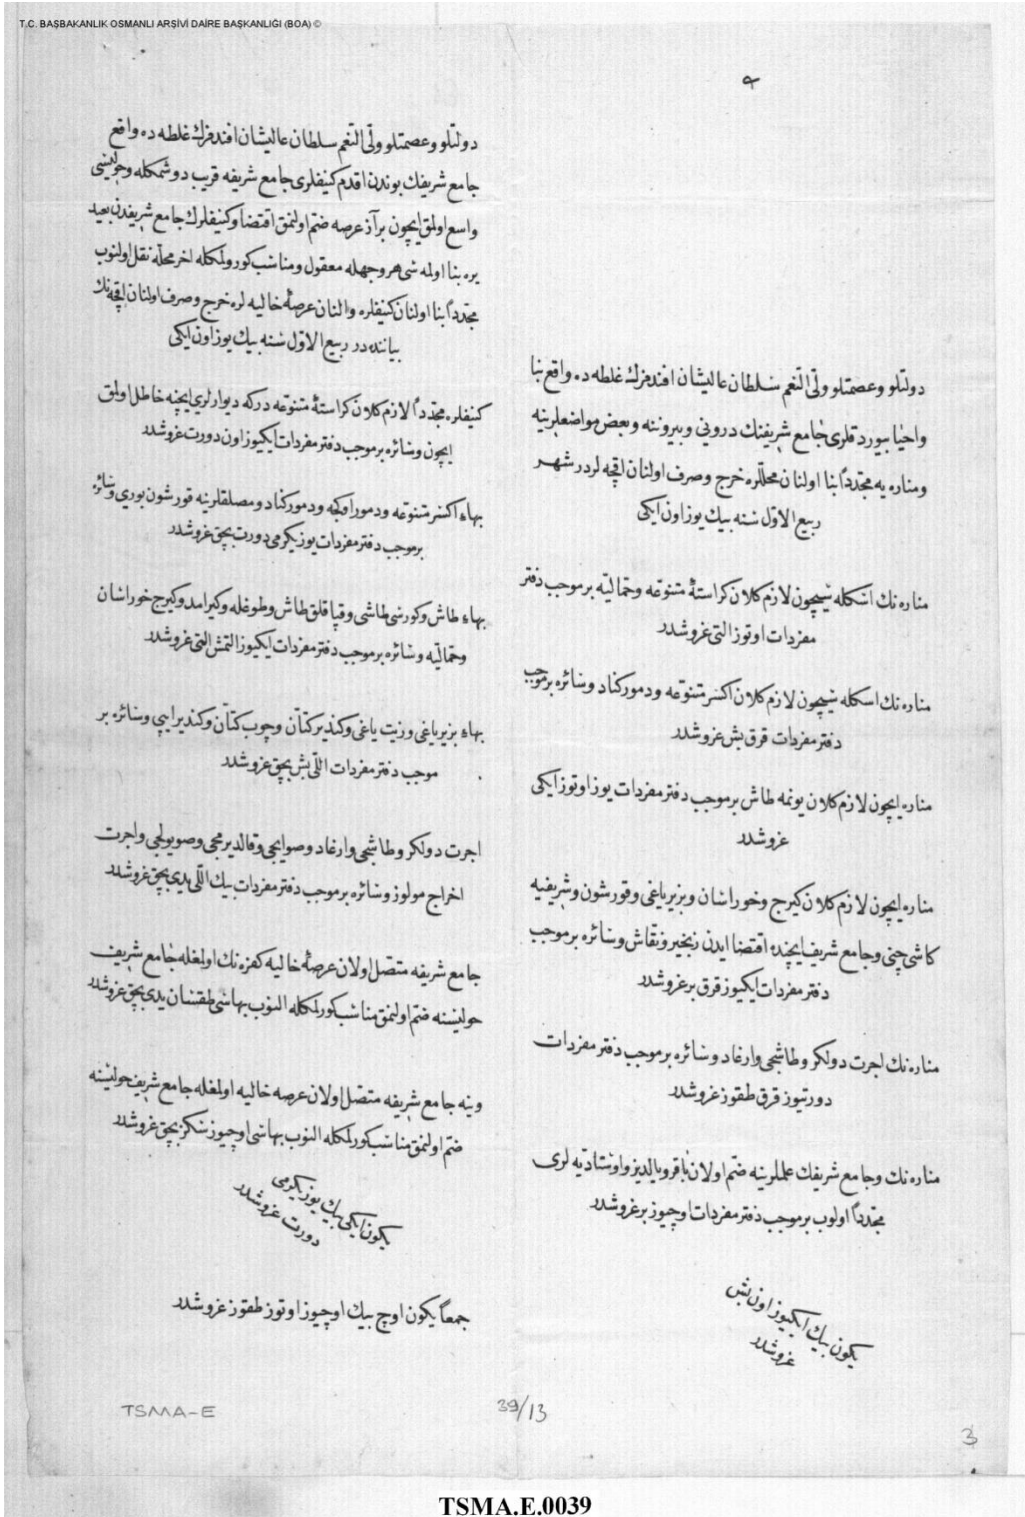 T.C. BAŞBAKANLIK OSMANLI ARŞİVİ DAİRE BAŞKANLIĞI (BOA) ©
دولتلو و عصمتلو ولي النعم سلطان عاليشان افندمزك غلطه ده واقع بنا
واحيا بيوردقلري جامع شريفنك دروني و بيروننه و بعض مواضعلرينه
و مناره يه مجدداً بنا اولنان محللره خرج و صرف اولنان اقچه لردر شهر
ربيع الاول سنه بيك يوز اون ايكي
مناره نك اسكله سيچون لازم كلان كراستهٔ متنوعه و حماليه بر موجب دفتر
مفردات اوتوز التي غروشدر
مناره نك اسكله سيچون لازم كلان اكسر متنوعه و دمور كناد و سائره بر موجب
دفتر مفردات قرق بش غروشدر
مناره ايچون لازم كلان يونمه طاش بر موجب دفتر مفردات يوز اوتوز ايكي
غروشدر
مناره ايچون لازم كلان كيرج و خوراسان و بزير ياغي و قورشون و شريفيه
كاشي چني و جامع شريف ايچنده اقتضا ايدن زنجير و نقاش و سائره بر موجب
دفتر مفردات ايكيوز قرق بر غروشدر
مناره نك اجرت دولكر و طاشجي و ارغاد و سائره بر موجب دفتر مفردات
دورتيوز قرق طقوز غروشدر
مناره نك و جامع شريفك علملرينه ضم اولان باقر و يالديز و اوستاديه لري
مجدداً اولوب بر موجب دفتر مفردات اوچيوز بر غروشدر
يكون بيك ايكيوز اون بش
غروشدر
دولتلو و عصمتلو ولي النعم سلطان عاليشان افندمزك غلطه ده واقع
جامع شريفك بوندن اقدم كنيفلري جامع شريفه قريب دوشمكله و حوليسي
واسع اولمق ايچون بر آز عرصه ضم اولنمق اقتضا و كنيفلرك جامع شريفدن بعيد
يره بنا اولمه سي هر وجهله معقول و مناسب كورولمكله اخر محله نقل اولنوب
مجدداً بنا اولنان كنيفلره و النان عرصهٔ خاليه لره خرج و صرف اولنان اقچه نك
بياننده در ربيع الاول سنه بيك يوز اون ايكي
كنيفلره مجدداً لازم كلان كراستهٔ متنوعه در كه ديوارلري ايچنه خاطل اولمق
ايچون و سائره بر موجب دفتر مفردات ايكيوز اون دورت غروشدر
بهاء اكسر متنوعه و دمور اوكجه و دمور كناد و مصلقلرينه قورشون بوري و سائره
بر موجب دفتر مفردات يوز يكرمي دورت بچق غروشدر
بهاء طاش و كورسي طاشي و قپاقلق طاش و طوغله و كيرامد و كيرج خوراسان
و حماليه و سائره بر موجب دفتر مفردات ايكيوز التمش التي غروشدر
بهاء بزير ياغي و زيت ياغي و كندير كتان و چوب كتان و كندير ايپي و سائره بر
موجب دفتر مفردات اللي بش بچق غروشدر
اجرت دولكر و طاشجي و ارغاد و صوايجي و قالديرمجي و صويولجي و اجرت
اخراج مولوز و سائره بر موجب دفتر مفردات بيك اللي يدي بچق غروشدر
جامع شريفه متصل اولان عرصهٔ خاليه كفره نك اولمغله جامع شريف
حوليسنه ضم اولنمق مناسب كورلمكله النوب بهاسي طقسان يدي بچق غروشدر
وينه جامع شريفه متصل اولان عرصه خاليه اولمغله جامع شريف حوليسنه
ضم اولنمق مناسب كورلمكله النوب بهاسي اوچيوز سكز بچق غروشدر
يكون ايكي بيك يوز يكرمي
دورت غروشدر
جمعاً يكون اوچ بيك اوچيوز اوتوز طقوز غروشدر
TSMA-E
39/13
3
TSMA.E.0039